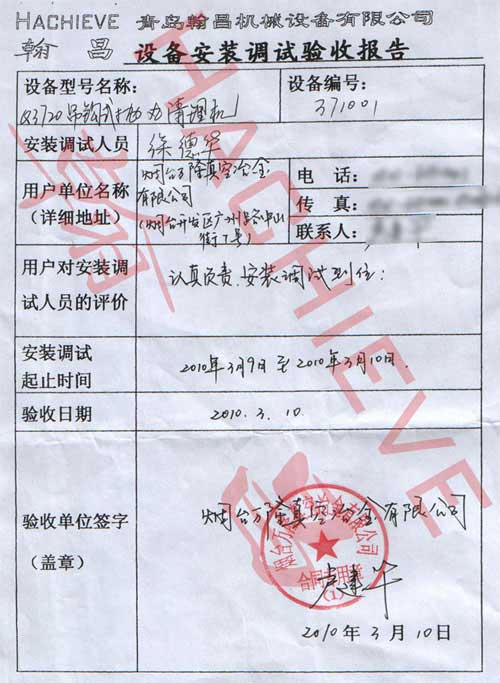 HACHIEVE 青岛翰昌机械设备有限公司
翰昌 设备安装调试验收报告
设备型号名称: 设备编号:
Q3720吊钩式抛丸清理机 371001
安装调试人员 徐德华
用户单位名称 烟台万隆真空冶金有限公司 电话:
(详细地址) (烟台开发区广州路 中山街7号) 传真:
联系人:
用户对安装调试人员的评价 认真负责、安装调试到位:
安装调试
起止时间 2010年3月9日 至 2010年3月10日.
验收日期 2010.3.10
验收单位签字
(盖章)
烟台万隆真空冶金有限公司
烟台万隆真空冶金有限公司
合同专用章
(1)
2010年3月10日
HACHIEVE
翰昌